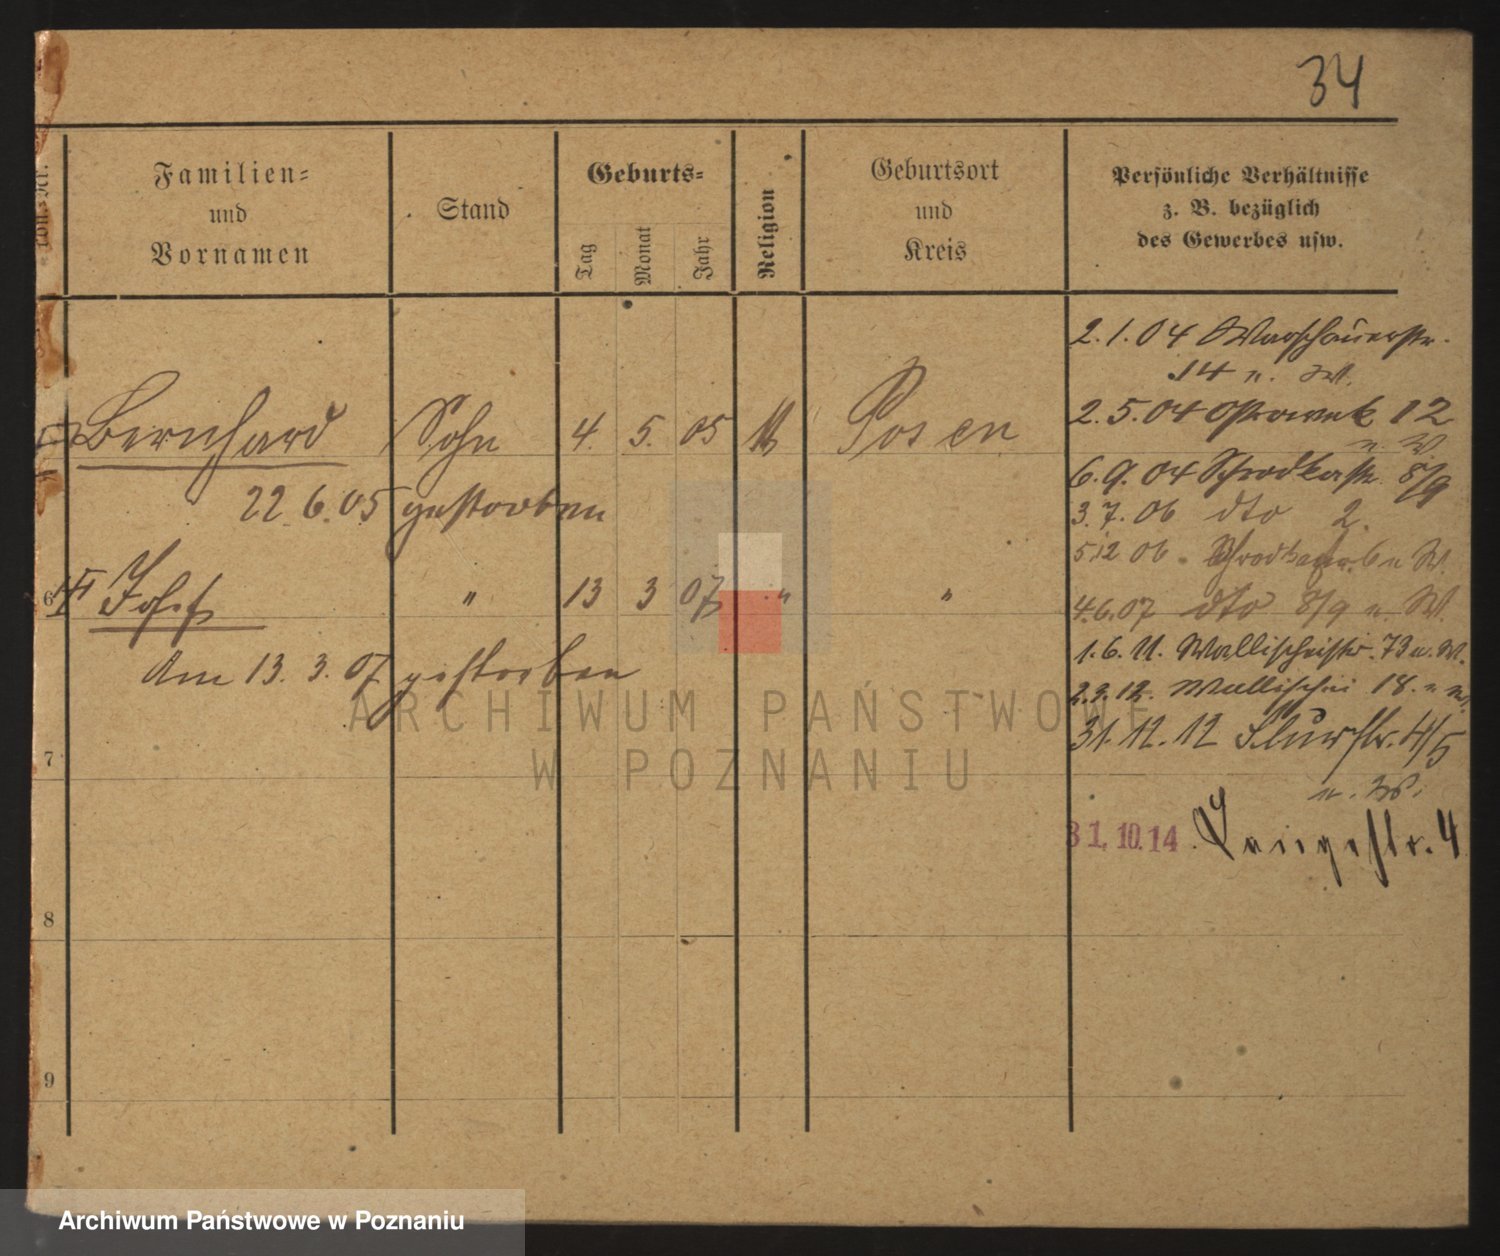 34
Lauf. Nr.
Familien-
und
Vornamen
Stand
Geburts-
Tag
Monat
Jahr
Religion
Geburtsort
und
Kreis
Persönliche Verhältnisse
z. B. bezüglich
des Gewerbes usw.
2.1.04 Warschauerstr.
14 u. W.
Bernhard Sohn 4. 5. 05 Posen
2.5.04 Ostrowek 12
u. W.
22.6.05 gestorben
6.9.04 Schrodkastr. 8/9
3.7.06 dto 2.
5.12.06 u W.
6 Josef " 13 3 07 " "
4.6.07 dto 8/9 u. W.
Am 13.3.07 gestorben
1.6.11. Wallischeistr. 73 u. W.
2.3.12. Wallischei 18. u W.
31.12.12 Flurstr. 4/5
u. W.
7
31.10.14. Langestr. 4
8
9
ARCHIWUM PAŃSTWOWE
W POZNANIU
Archiwum Państwowe w Poznaniu